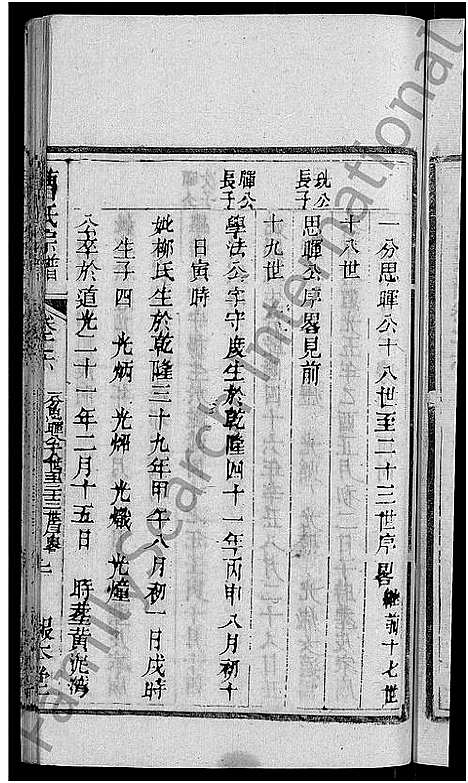 一分思暉公十八世至二十三世序畧 繼前十七世
十八世
公長子
思暉公序畧見前
十九世
暉公長子
學法公字守度生於乾隆四十一年丙申八月初十
日寅時
妣柳氏生於乾隆三十九年甲午八月初一日戌時
生子四 光炳 光炤 光熾 光燑
公卒於道光二十一年二月十五日 時塟黄泥灣
氏宗譜
一分思暉公十八世至二十三世序畧
報本堂
FamilySearch International